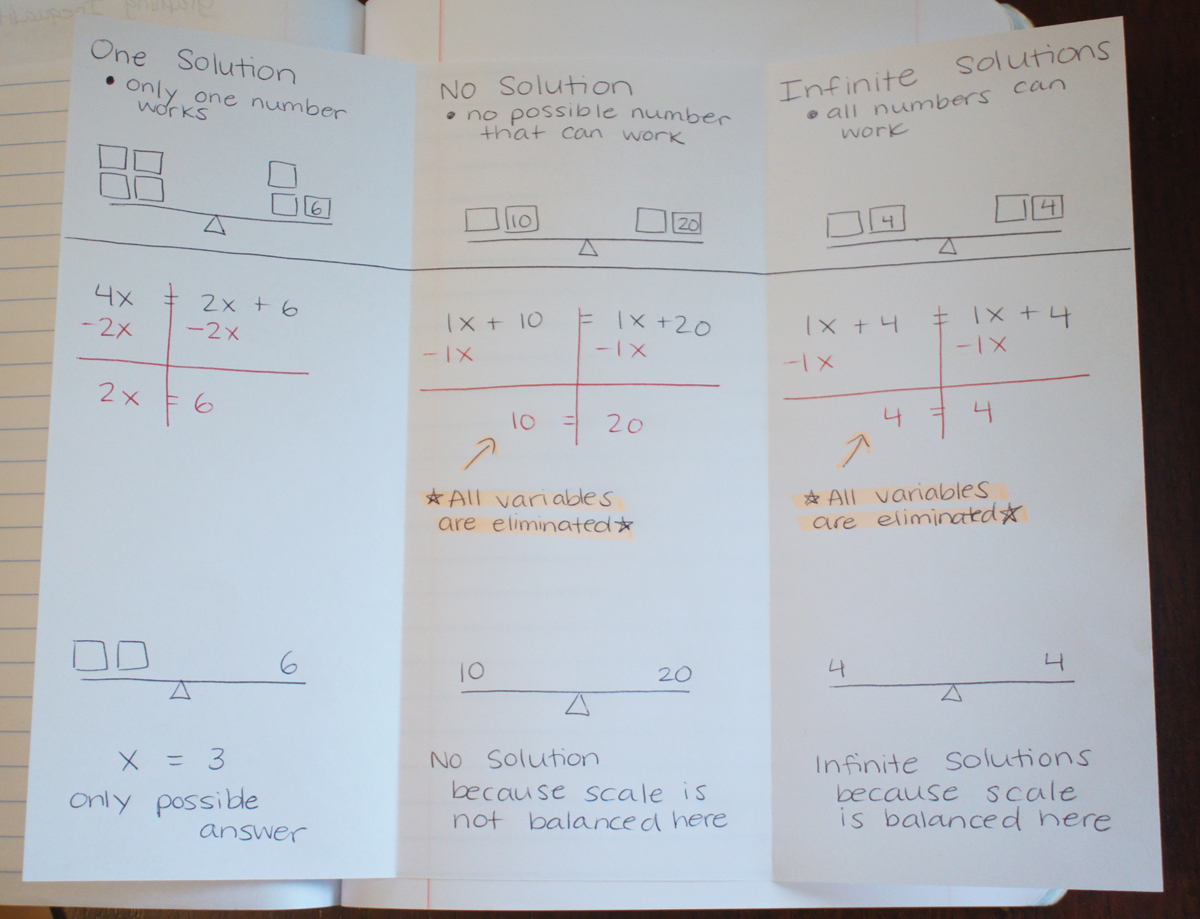 One Solution
• only one number
works
6
4x = 2x + 6
-2x -2x
2x = 6
6
x = 3
only possible
answer
No Solution
• no possible number
that can work
10 20
1x + 10 = 1x +20
-1x -1x
10 = 20
☆All variables
are eliminated☆
10 20
No Solution
because scale is
not balanced here
Infinite Solutions
• all numbers can
work
4 4
1x + 4 = 1x + 4
-1x -1x
4 = 4
☆All variables
are eliminated☆
4 4
Infinite Solutions
because scale
is balanced here